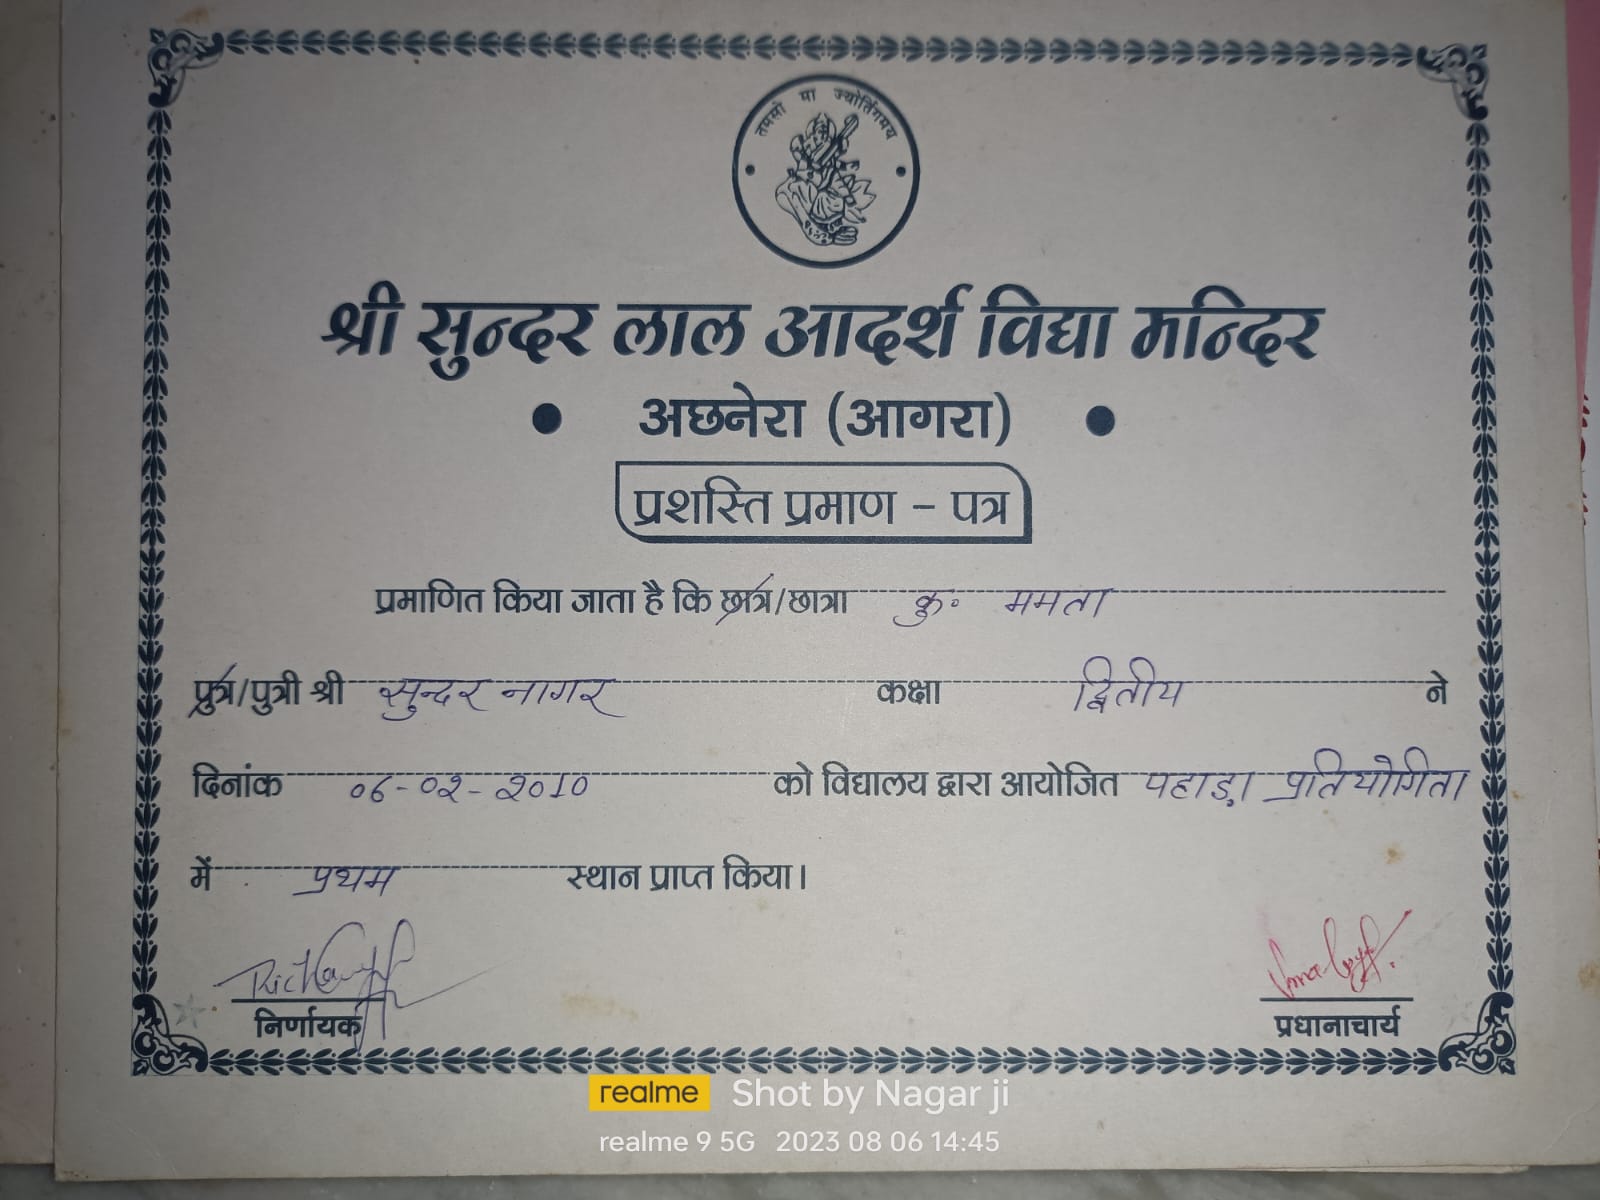 तमसो मा ज्योतिंगमय
श्री सुन्दर लाल आदर्श विद्या मन्दिर
• अछनेरा (आगरा) •
प्रशस्ति प्रमाण – पत्र
प्रमाणित किया जाता है कि छात्र/छात्रा कु॰ ममता
पुत्र/पुत्री श्री सुन्दर नागर कक्षा द्वितीय ने
दिनांक 06-02-2010 को विद्यालय द्वारा आयोजित पहाड़ा प्रतियोगिता
में प्रथम स्थान प्राप्त किया।
निर्णायक प्रधानाचार्य
realme Shot by Nagar ji
realme 9 5G 2023 08 06 14:45